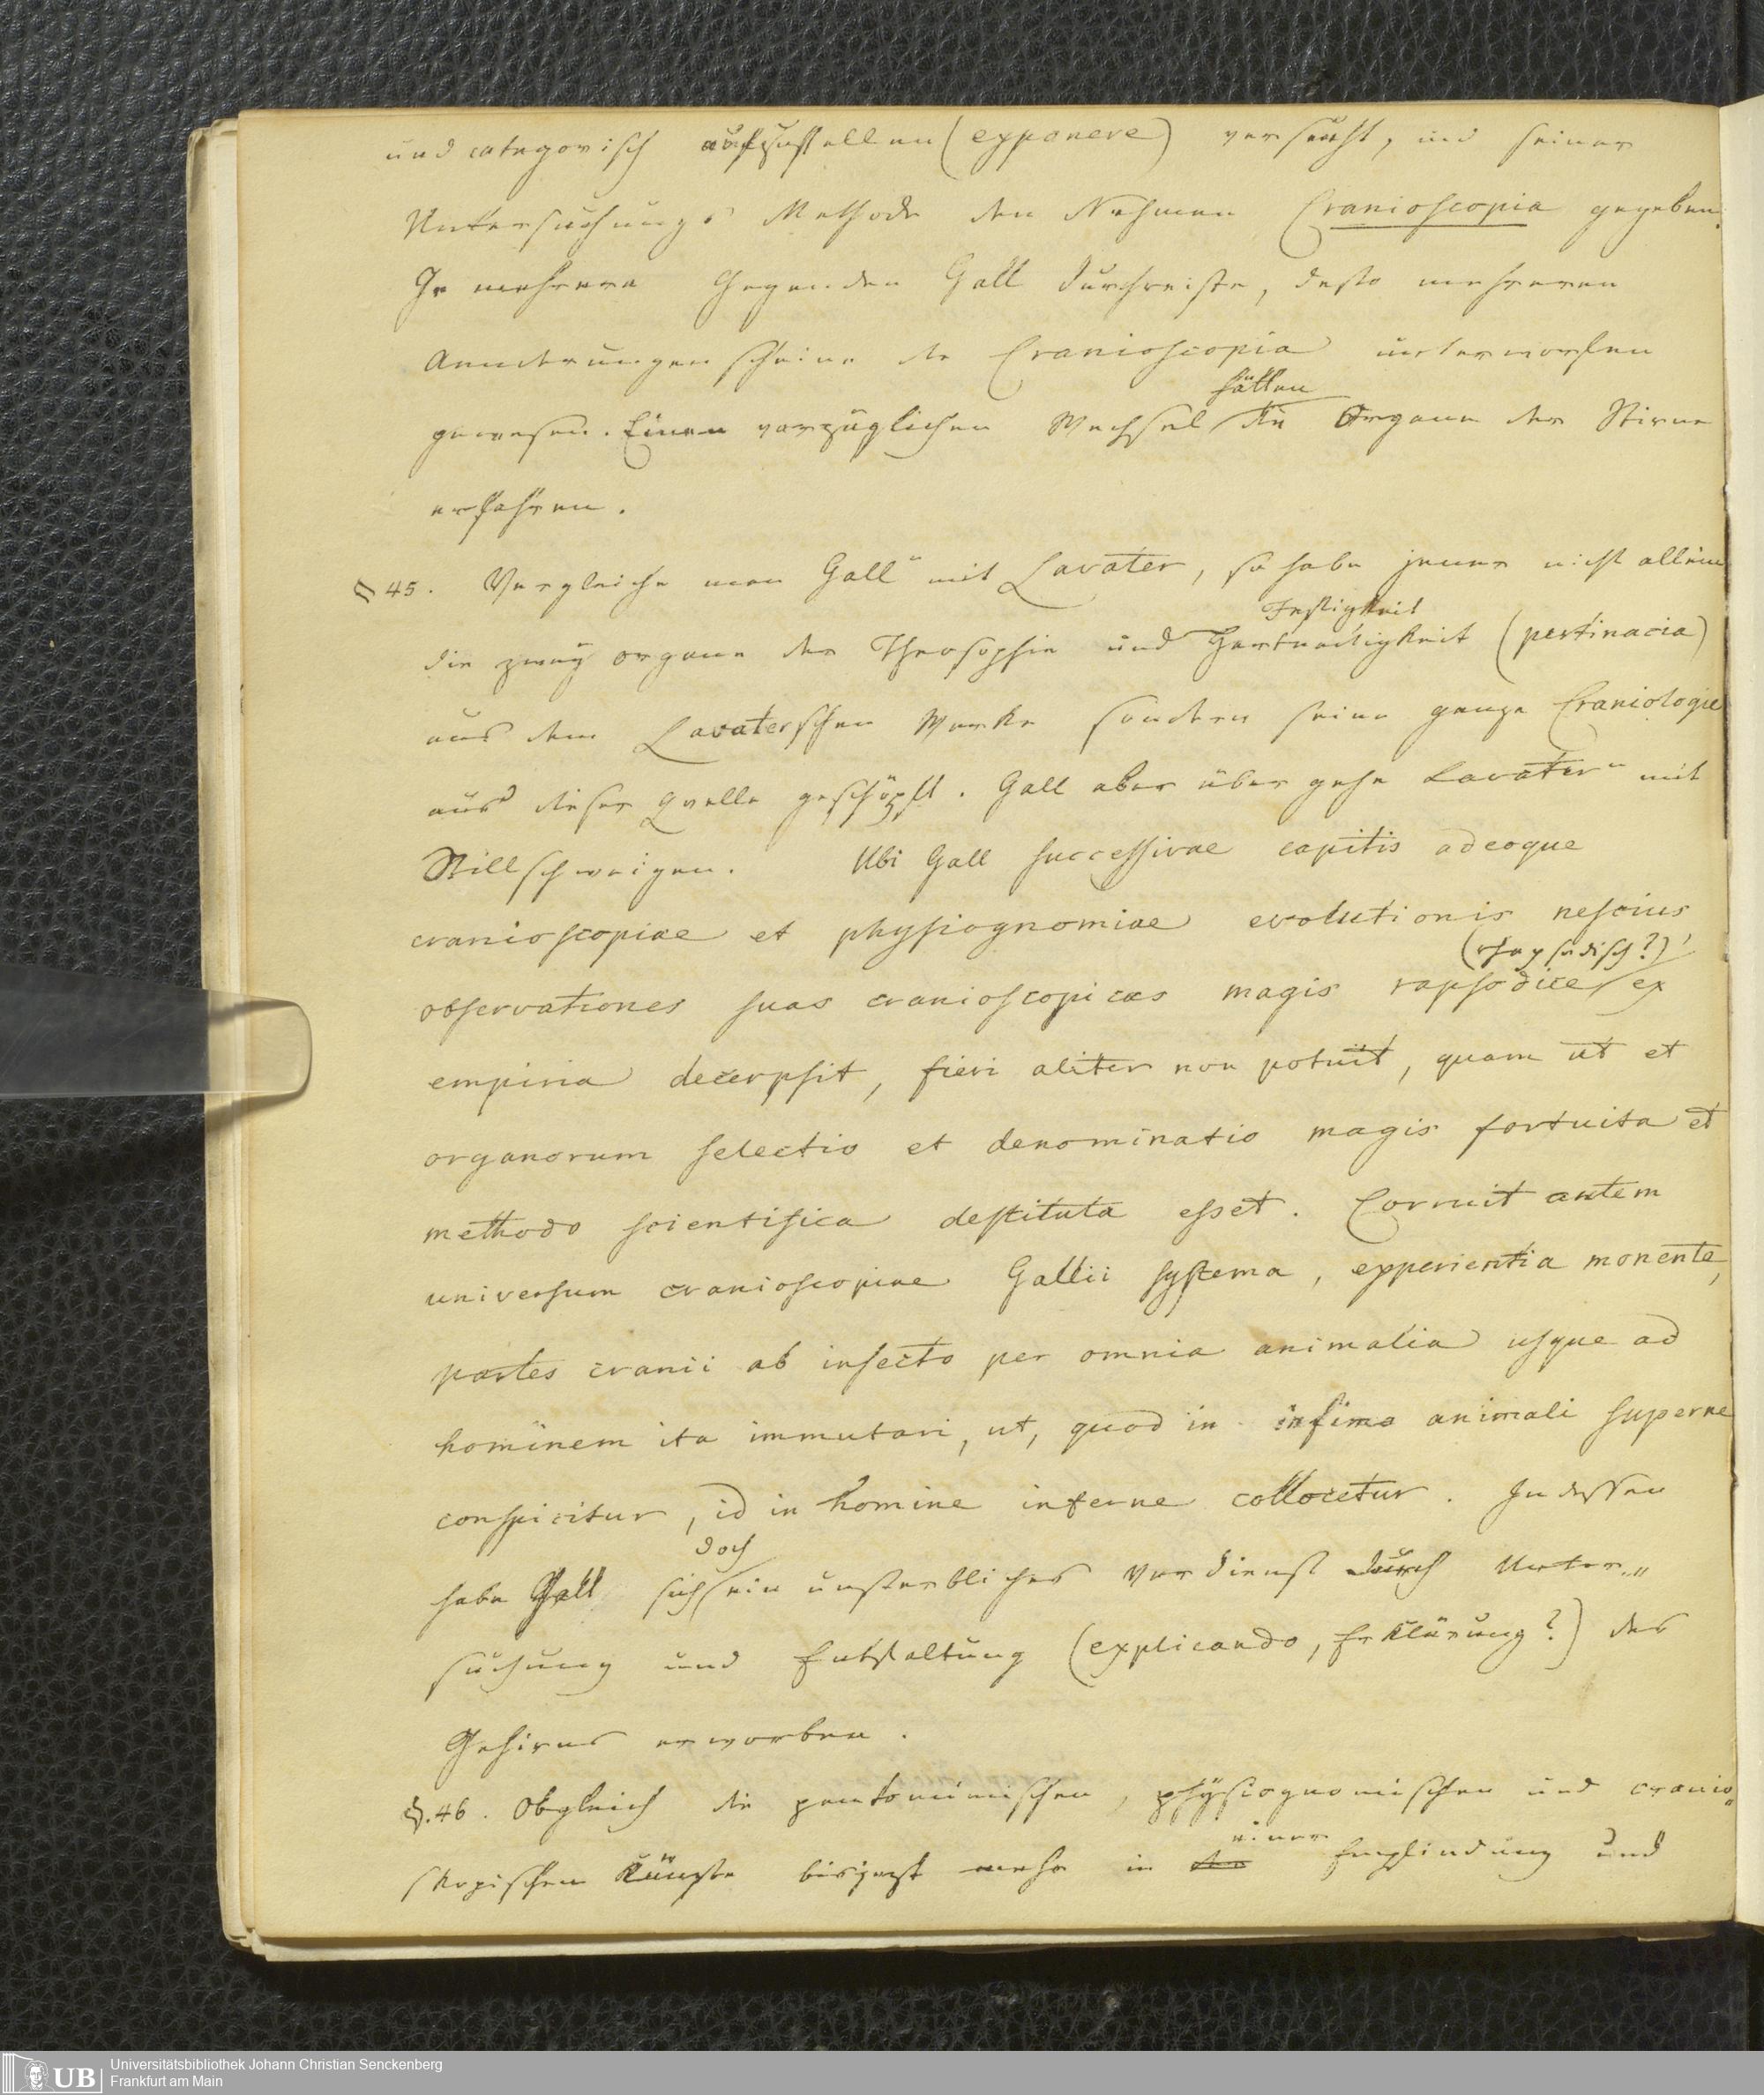 und categorisch aufzustellen (exponere) versucht, und seiner
Untersuchungs Methode den Nahmen Cranioscopia gegeben.
Je mehrere Gegenden Gall durchreiste, desto mehreren
Aenderungen scheine die Cranioscopia unterworfen
hätten
gewesen. Einen vorzüglichen Wechsel die Organe der Stirne
erfahren.
§ 45. Vergleiche man Gall mit Lavater, so habe jener nicht allein
Festigkeit
die zwey organe der Theosophie und Hartnäckigkeit (pertinacia)
aus dem Lavaterschen Werke sondern seine ganze Craniologie
aus dieser Quelle geschöpft. Gall aber über gehe Lavater mit
Stillschweigen. Ubi Gall successivae capitis adeoque
cranioscopiae et physiognomiae evolutionis nescius
(rhapsodisch?)
observationes suas cranioscopicas magis rapsodice ex
empiria decerpsit, fieri aliter non potuit, quam ut et
organorum selectio et denominatio magis fortuita et
methodo scientifica destituta esset. Corruit autem
universum cranioscopiae Gallii systema, experientia monente,
partes cranii ab insecto per omnia animalia usque ad
hominem ita immutari, ut, quod in infimo animali superne
conspicitur, id in homine inferne collocetur. Indessen
doch
habe Gall sich ein unsterbliches Verdienst durch Unter„
suchung und Entfaltung (explicando, Erklärung?) des
Gehirns erworben.
§. 46. Obgleich die pantomimischen, physiognomischen und cranio„
einer
skopischen Künste bisjezt mehr in der Empfindung und
Universitätsbibliothek Johann Christian Senckenberg
UB Frankfurt am Main